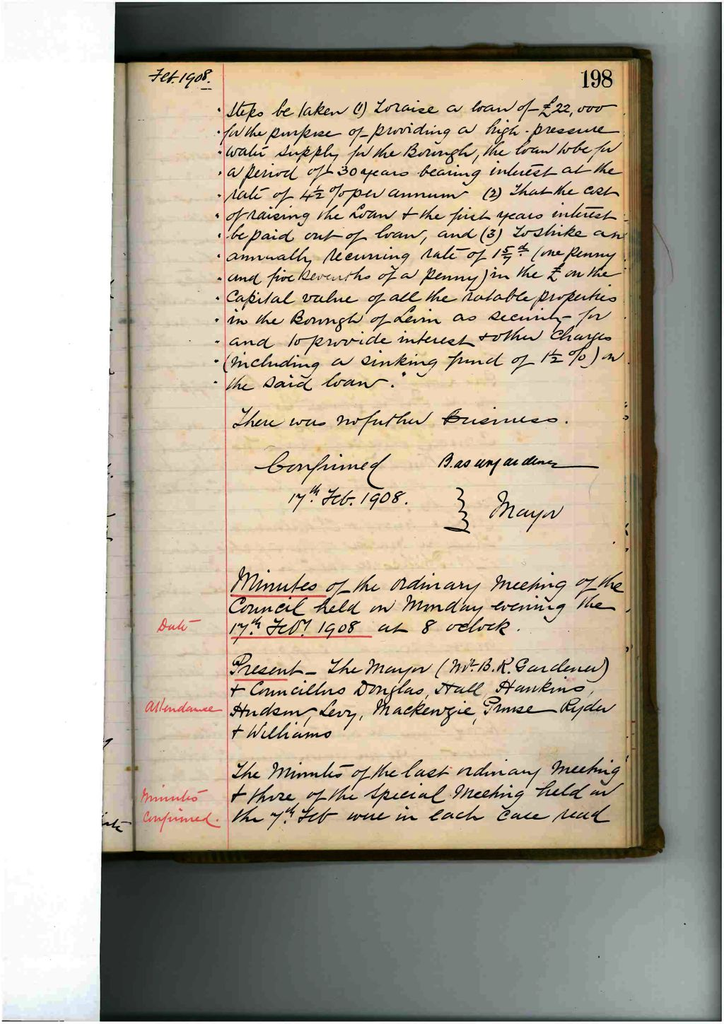 Feb. 1908.
198
steps be taken (1) To raise a loan of £22,000
for the purpose of providing a high-pressure
water supply for the Borough, the loan to be for
a period of 30 years bearing interest at the
rate of 4½ % per annum (2) That the cost
of raising the Loan + the first years interest
be paid out of loan, and (3) To strike an
annually recurring rate of 1 5/7 d (one penny
and five sevenths of a penny) in the £ on the
Capital value of all the ratable properties
in the Borough of Levin as security for
and to provide interest + other Charges
(including a sinking fund of 1½ %) on
the said loan."
There was no further Business.
Confirmed
17th Feb. 1908.
Mayor
Minutes of the ordinary Meeting of the
Council held on Monday evening the
Date
17th Feby 1908 at 8 oclock.
Present – The Mayor (Mr. B. R. Gardener)
+ Councillors Douglas, Hall, Hankins,
Attendance
Hudson, Levy, Mackenzie, Prouse Ryder
+ Williams
The Minutes of the last ordinary Meeting
Minutes
+ those of the Special Meeting held on
Confirmed.
the 7th Feb were in each case read